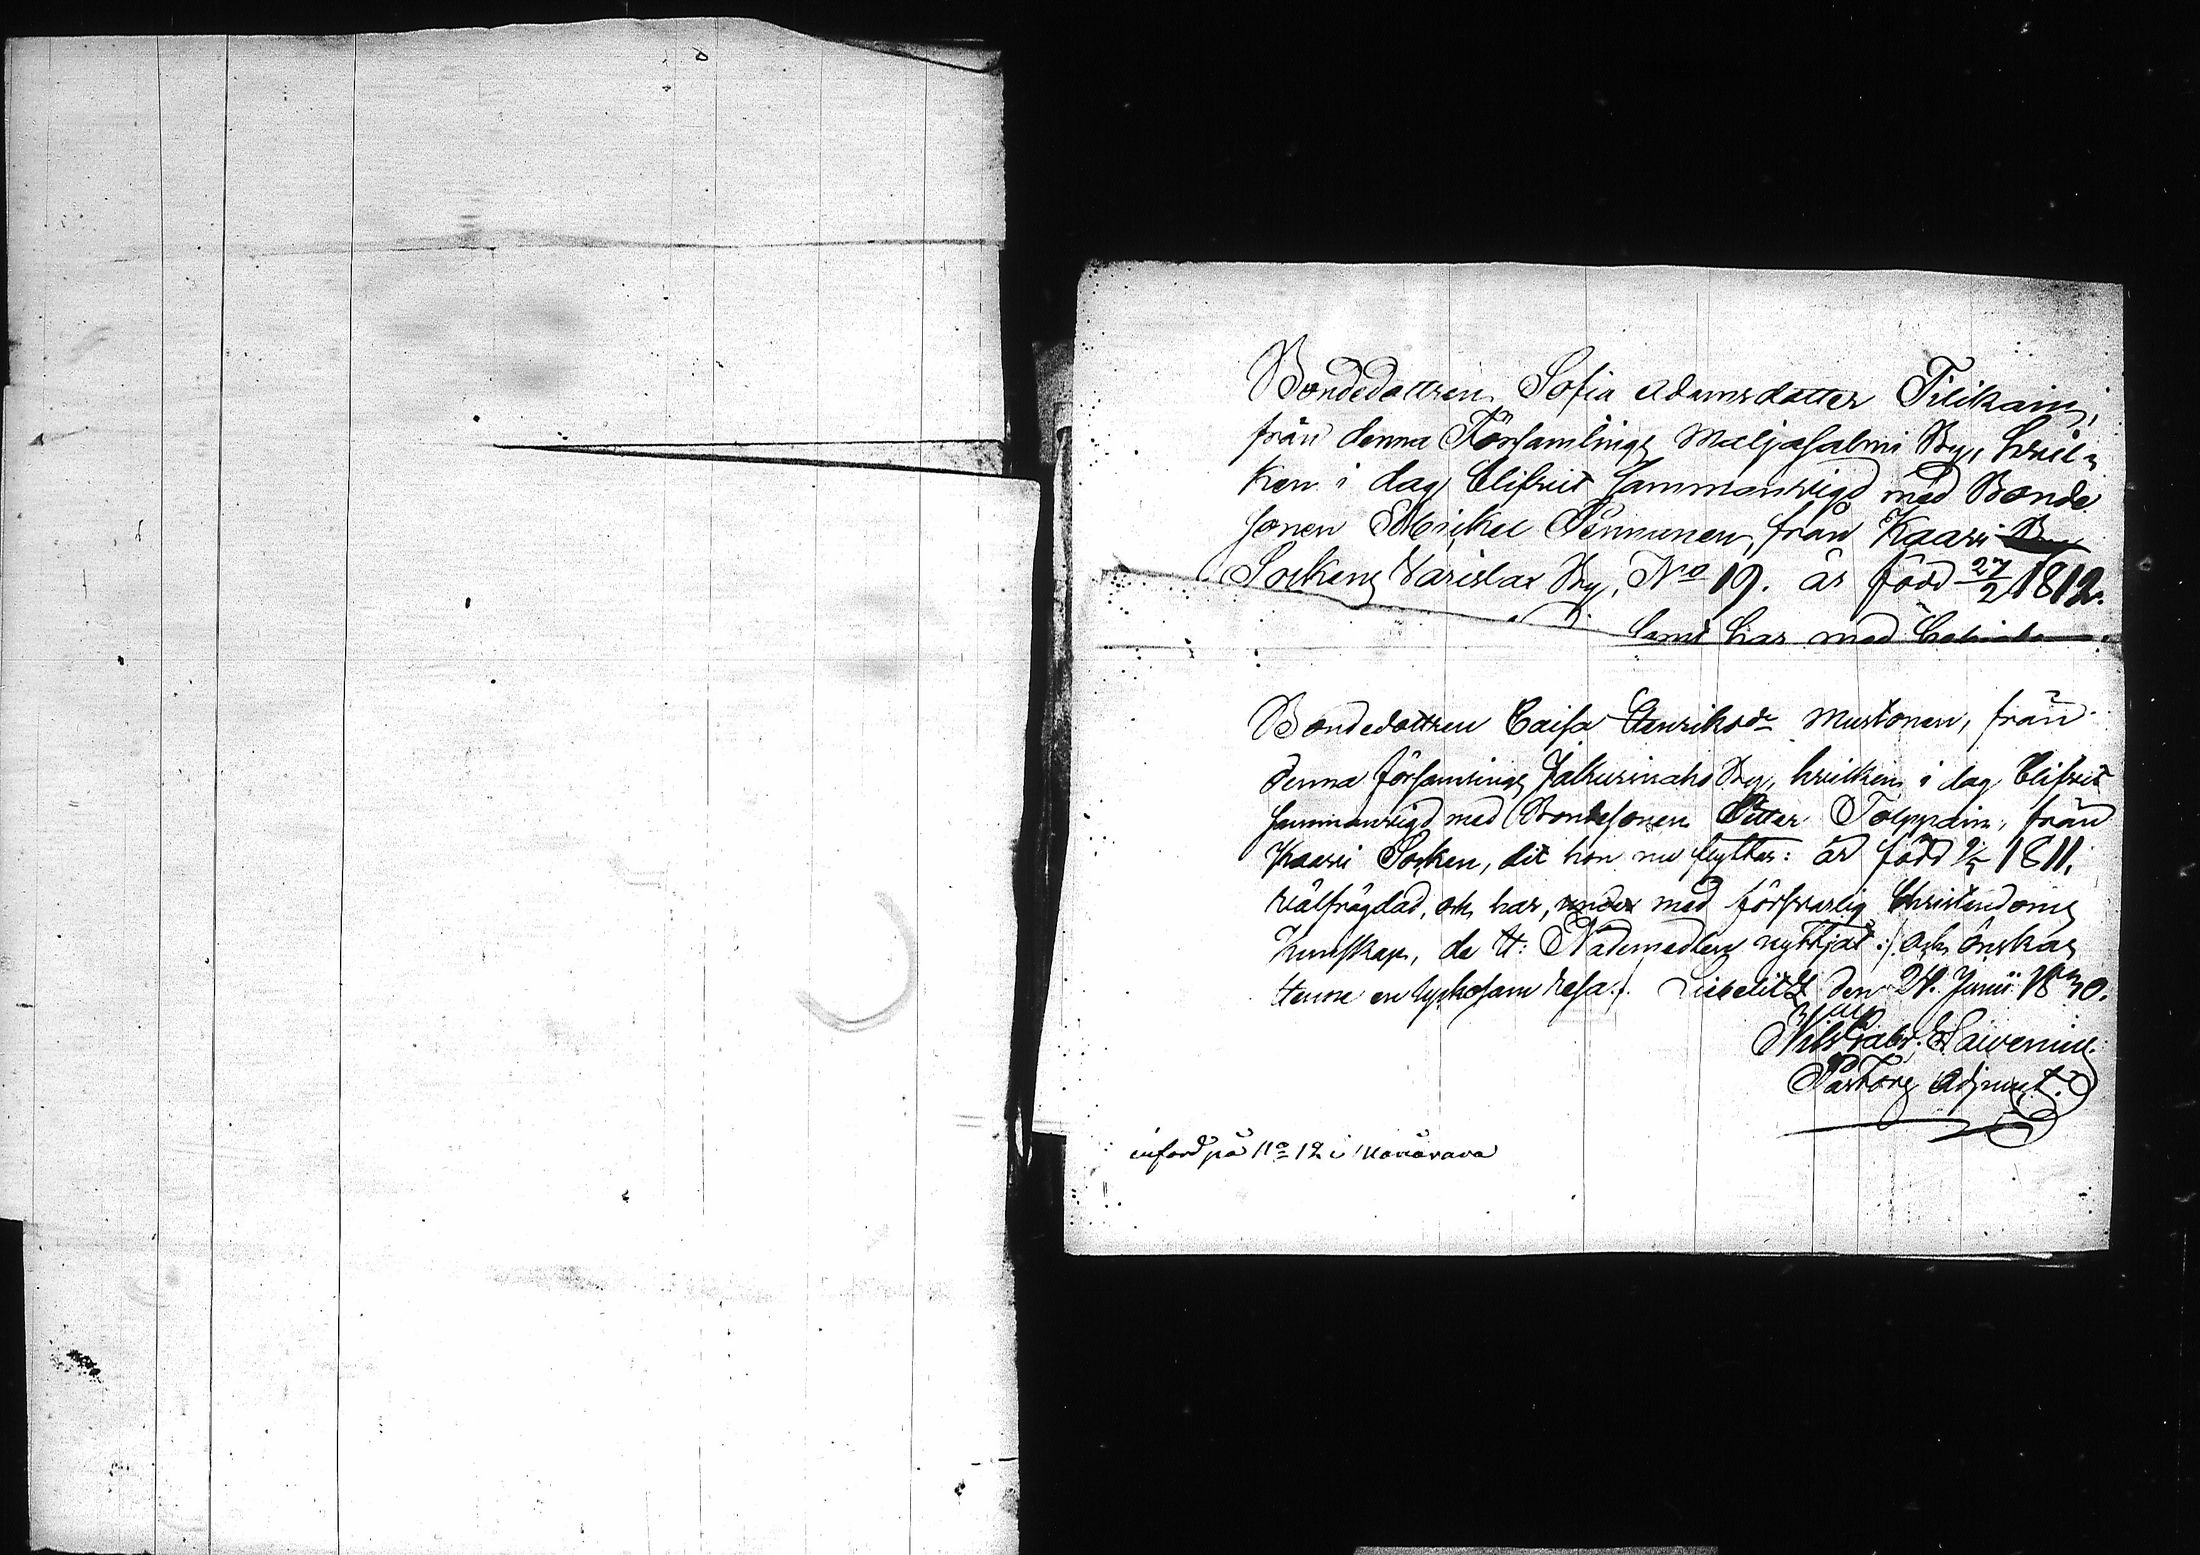 Bondedottren Sofia Adamsdotter Tilikain,
från denna Församlings Maljasalmi By, hvil-
ken i dag blifvit Sammanvigd med Bonde
sonen Michel Pennunen, från Kaavi By
Sockens Varislax By, No 19. är född 27/2 1812.
samt har med
Bondedottren Caisa Henriksdr Mustonen, från
denna församlings By, hvilken i dag blifvit
sammanvigd med Bondesonen Petter Tolppain, från
Kaavi Socken, dit hon nu flyttar: är född 1811,
välfrägdad, och har, under med försvarlig Christendoms
kunskap, de H: Nådemedlen nyttjat: och önskas
henne en lyckosam resa. Libelitz den 24. Junii 1830.
Nils Gabr.
Pastors Adjunct.
införd på No 12 i